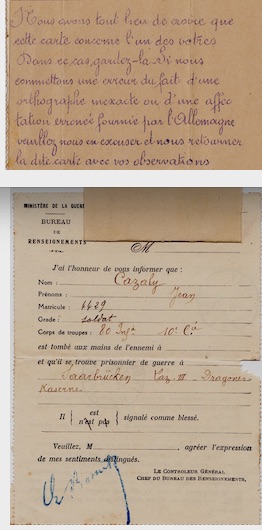 Nous avons tout lieu de croire que
cette carte concerne l'un des vôtres
Dans ce cas, gardez-la. Si nous
commettons une erreur du fait d'une
orthographe inexacte ou d'une affec
tation erronée fournie par l'Allemagne
veuillez nous en excuser et nous retourner
la dite carte avec vos observations
MINISTÈRE DE LA GUERRE
BUREAU
DE
RENSEIGNEMENTS
M
J'ai l'honneur de vous informer que :
Nom : Cazaly
Prénoms : Jean
Matricule : 4429
Grade : soldat
Corps de troupes : 80 Infie 10e Cie
est tombé aux mains de l'ennemi à
et qu'il se trouve prisonnier de guerre à
Saarbrücken Laz. III Dragoner
Kaserne
Il { est n'est pas } signalé comme blessé.
Veuillez, M agréer l'expression
de mes sentiments distingués.
LE CONTROLEUR GÉNÉRAL
CHEF DU BUREAU DES RENSEIGNEMENTS,